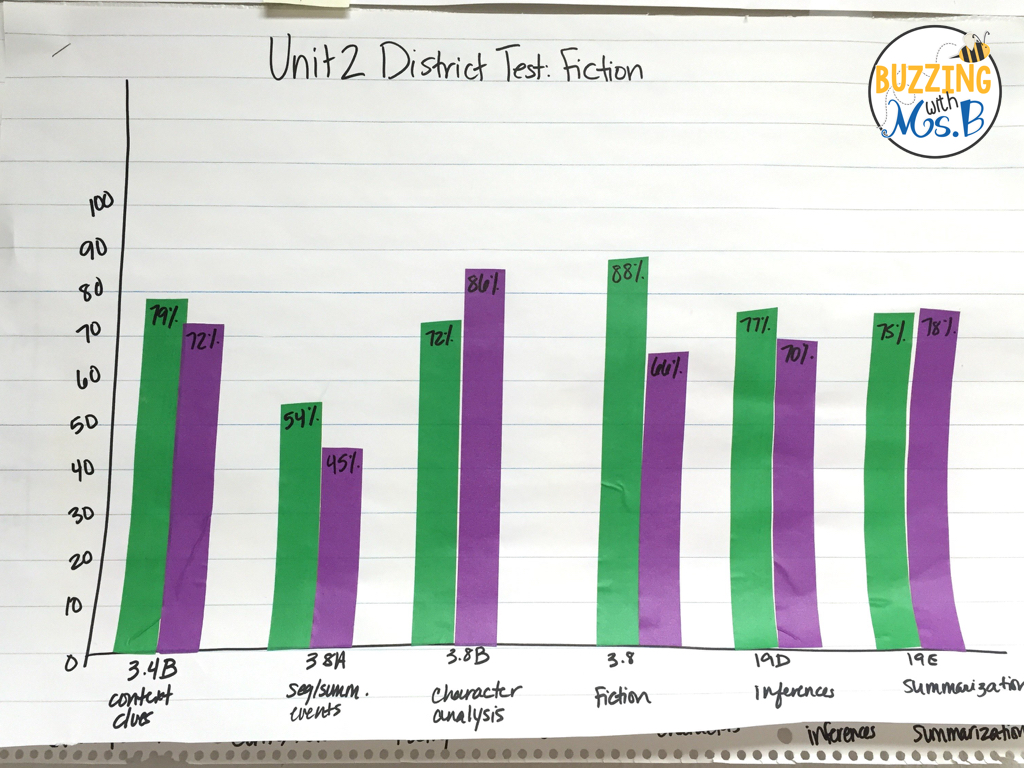 Unit 2 District Test: Fiction
BUZZING
with
Ms. B
100
90
80
70
60
50
40
30
20
10
0
79%
72%
54%
45%
72%
86%
88%
66%
77%
70%
75%
78%
3.4B
context
clues
3.8A
seq/summ.
events
3.8B
character
analysis
3.8
Fiction
19D
Inferences
19E
Summarization
inferences
Summarization